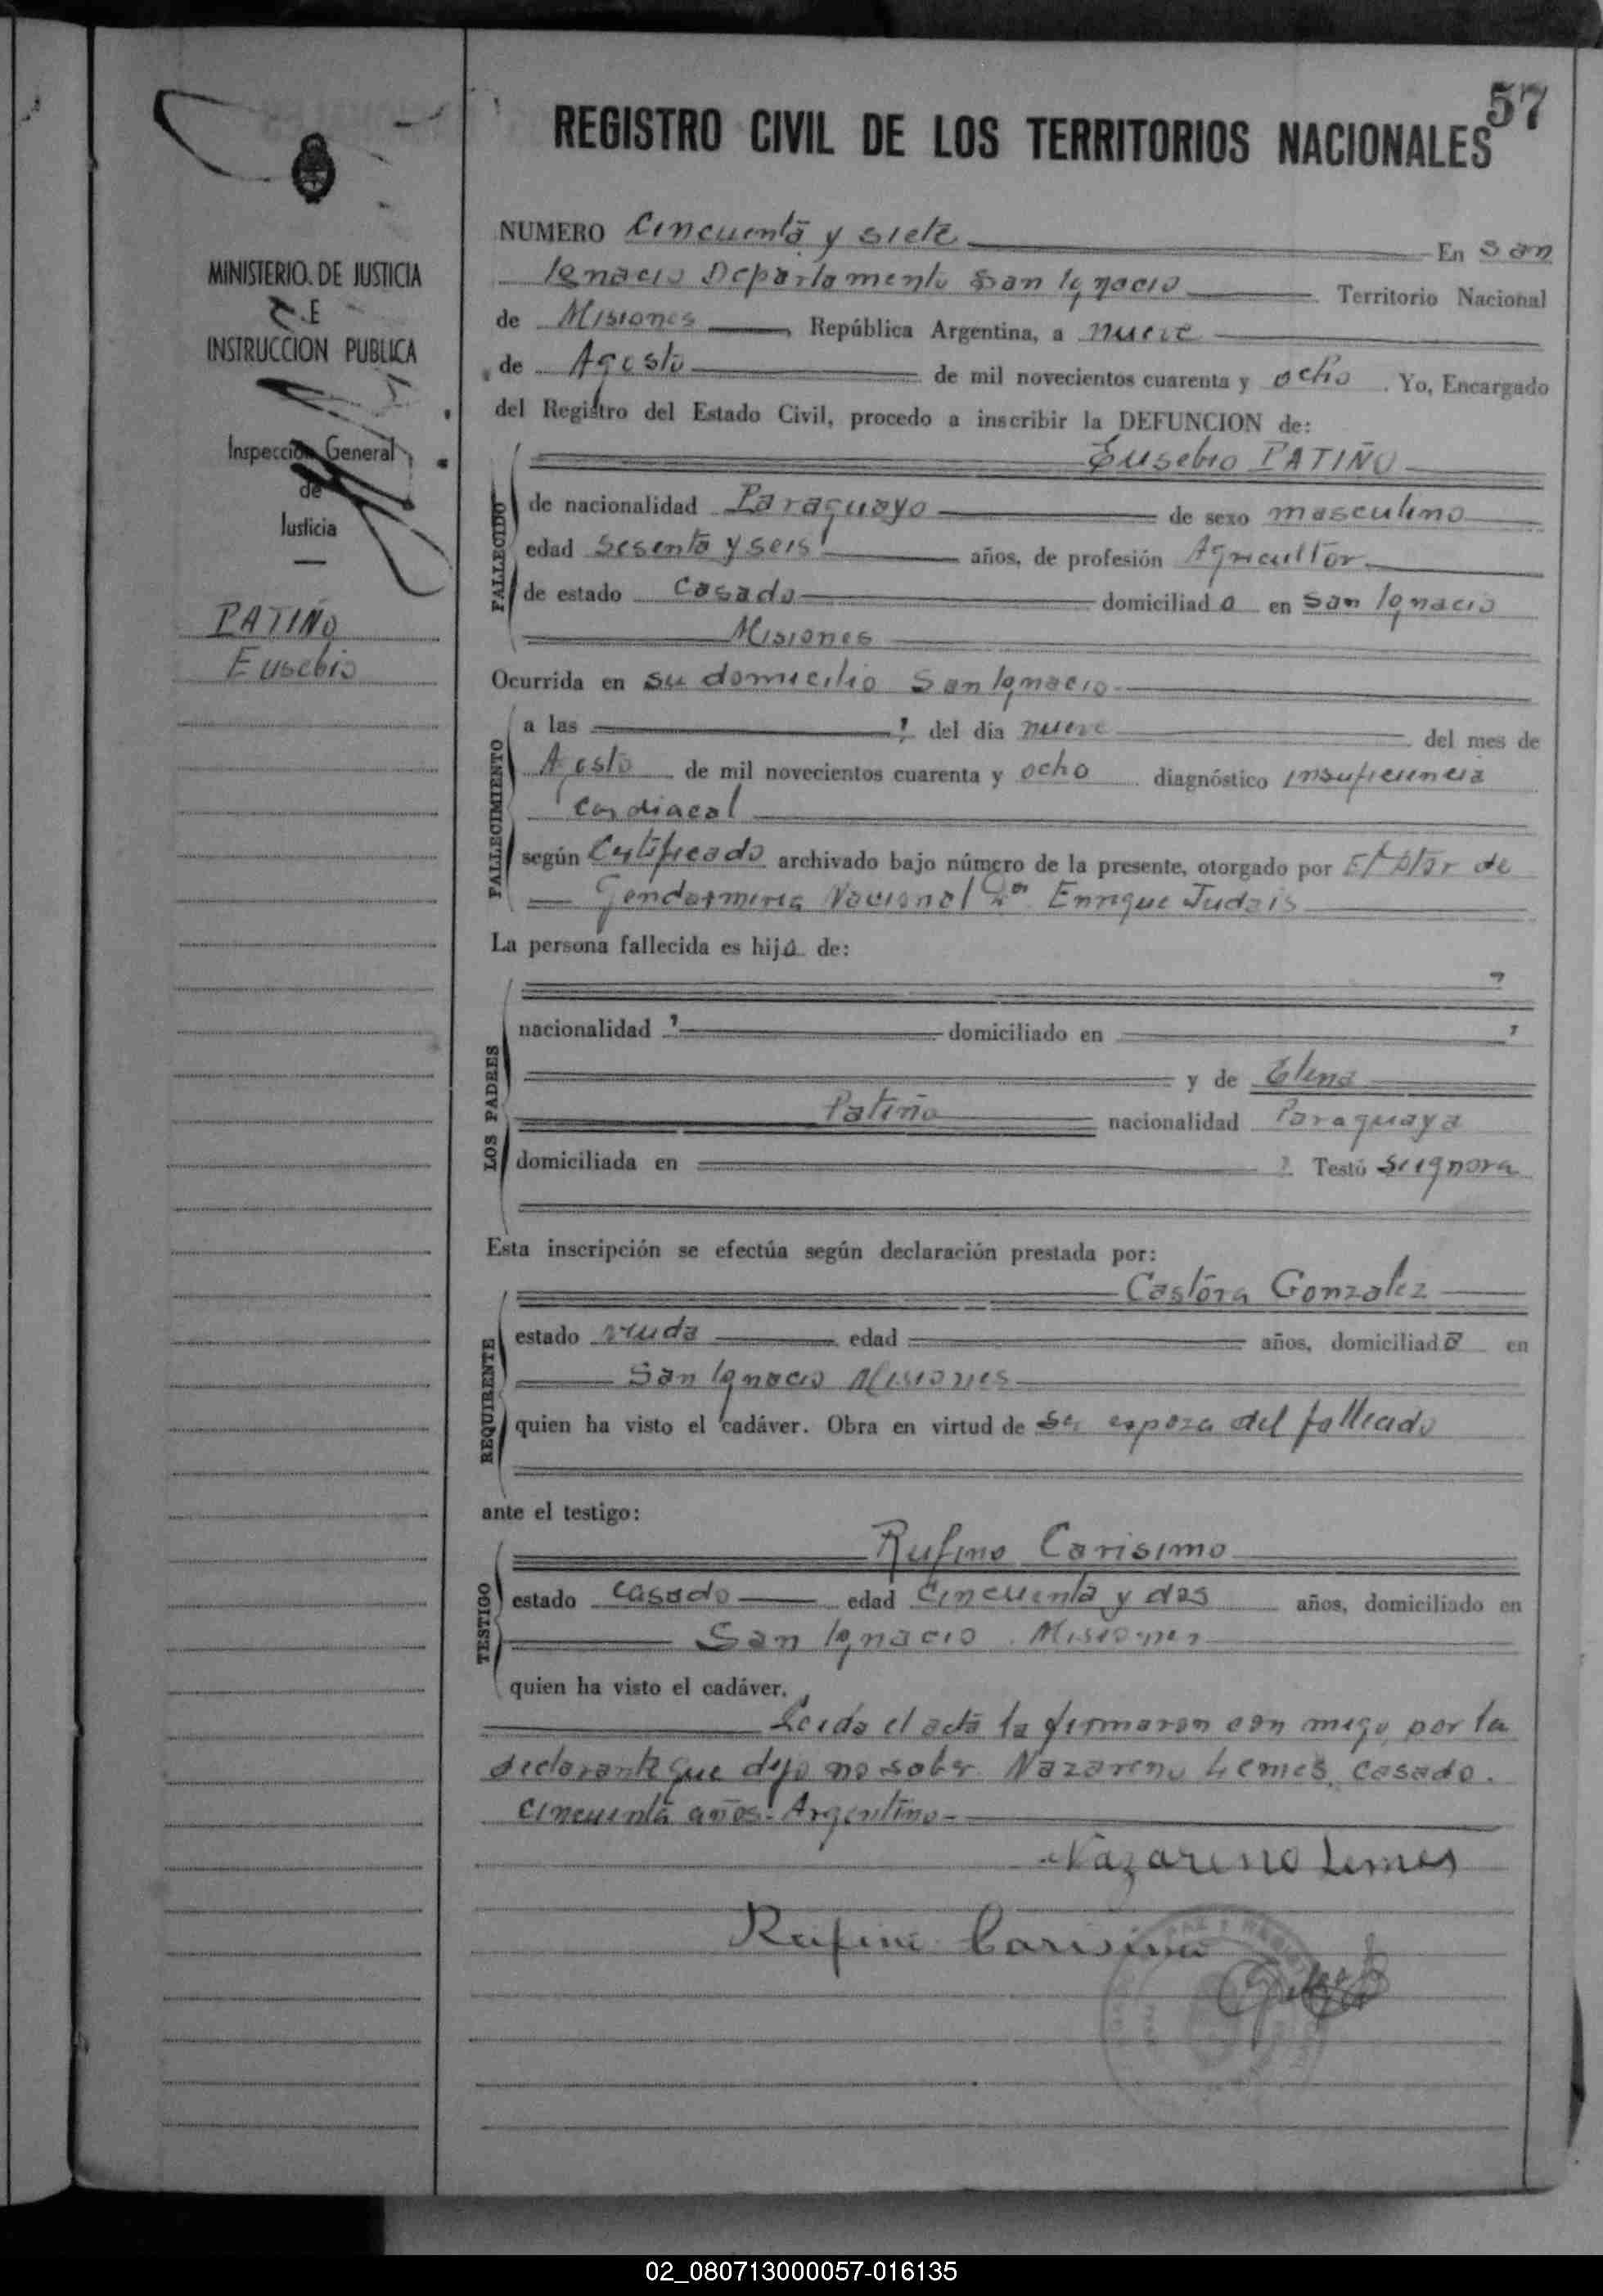 57
REGISTRO CIVIL DE LOS TERRITORIOS NACIONALES
MINISTERIO DE JUSTICIA
E
INSTRUCCION PUBLICA
Inspección General
de
Justicia
PATIÑO
Eusebio
NUMERO Cincuenta y siete En San
Ignacio Departamento San Ignacio Territorio Nacional
de Misiones, República Argentina, a nueve
de Agosto de mil novecientos cuarenta y ocho. Yo, Encargado
del Registro del Estado Civil, procedo a inscribir la DEFUNCION de:
Eusebio PATIÑO
FALLECIDO
de nacionalidad Paraguayo de sexo masculino
edad sesenta y seis años, de profesión Agricultor
de estado Casado domiciliado en San Ignacio
Misiones
Ocurrida en su domicilio San Ignacio
FALLECIMIENTO
a las ? del día nueve del mes de
Agosto de mil novecientos cuarenta y ocho diagnóstico insuficiencia
Cardiacal
según Certificado archivado bajo número de la presente, otorgado por El de
Gendarmeria Nacional Enrique
La persona fallecida es hijo de:
LOS PADRES
?
nacionalidad ? domiciliado en ?
y de Elena
Patiño nacionalidad Paraguaya
domiciliada en ? Testó se ignora
Esta inscripción se efectúa según declaración prestada por:
Castora Gonzalez
REQUIRENTE
estado viuda edad años, domiciliada en
San Ignacio Misiones
quien ha visto el cadáver. Obra en virtud de ser espoza del fallecido
ante el testigo:
Rufino Carisimo
TESTIGO
estado casado edad Cincuenta y dos años, domiciliado en
San Ignacio Misiones
quien ha visto el cadáver.
Leida el acta la firmaron con migo, por la
declarante que dijo no saber Nazareno Lemes, casado.
cincuenta años. Argentino-
Nazareno Lemes
Rufino Carisimo
02_080713000057-016135